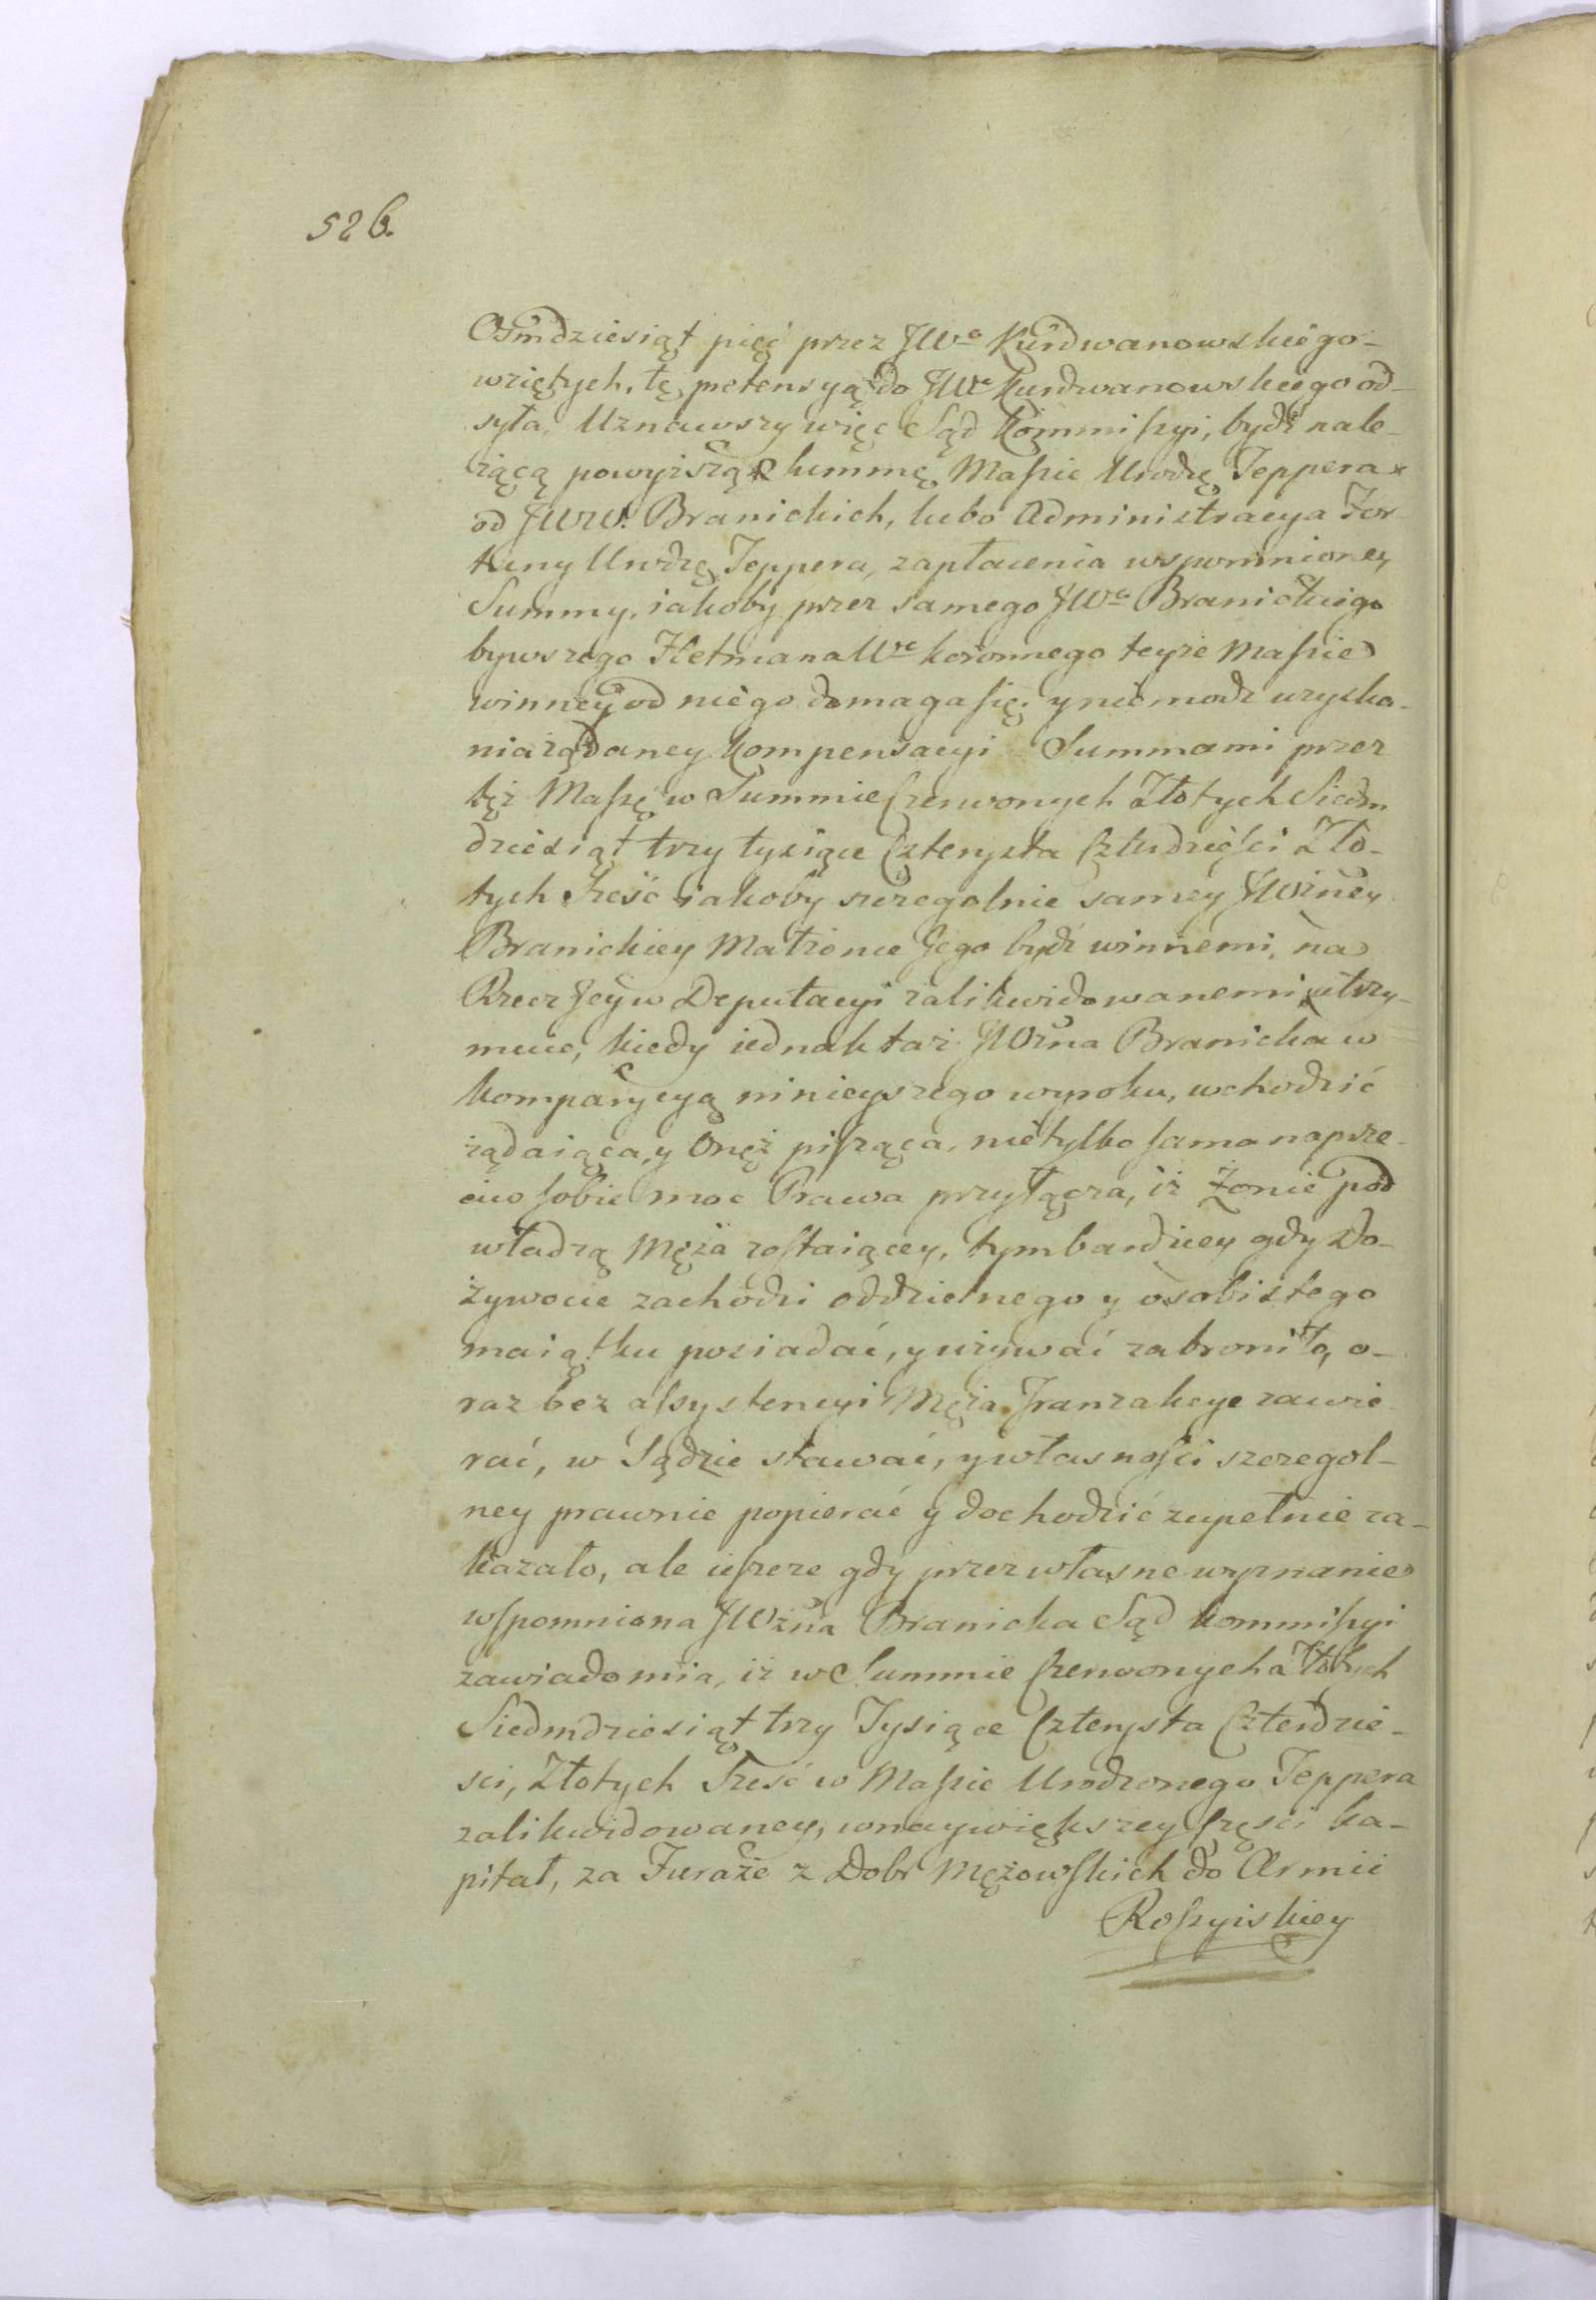 526.
Osmdziesiąt pięć przez JWo Kurdwanowskiego
wziętych, tę pretensyą do JWo Kurdwanowskiego od-
syła. Uznawszy więc Sąd Kommissyi, bydź nale-
żącą powyższą Summę Massie Urodzo Teppera
od JWW. Branickich, lubo Administracya For-
tuny Urodzo Teppera, zapłacenia wspomnioney
Summy, iakoby przez samego JWo Branickiego
bywszego Hetmana Wo koronnego teyże Massie
winney od niego domaga się, y niemodz uzyska-
nia żądaney kompensacyi Summami przez
tęż Massę w Summie Czerwonych Złotych Siedm
dziesiąt trzy tysiące Czterysta Czterdzieści Zło-
tych Sześć iakoby szczegolnie samey JWżney
Branickiey Małżonce Jego bydź winnemi, na
Rzecz Jey w Deputacyi zalikwidowanemi utrzy-
muie, kiedy iednak taż JWżna Branicka w
komparycyą ninieyszego wyroku, wchodzić
żądaiąca, y Onęż pisząca, nietylko sama naprze-
ciw sobie moc Prawa przyłącza, iż Żonie pod
władzą Męża zostaiącey, tym bardziey gdy Do-
żywocie zachodzi oddzielnego y osobistego
maiątku posiadać, y używać zabroniło, o-
raz bez assystencyi Męża Tranzakcye zawie-
rać, w Sądzie stawać, y własności szczegol-
ney prawnie popierać y dochodzić zupełnie za-
kazało, ale ieszcze gdy przez własne wyznanie
wspomniona JWżna Branicka Sąd kommissyi
zawiadomia, iż w Summie Czerwonych Złotych
Siedmdziesiąt trzy Tysiące Czterysta Czterdzie-
sci, Złotych Sześć w Massie Urodzonego Teppera
zalikwidowaney, w naywiększey Części ka-
pitał, za Furaże z Dobr Mężowskich do Armii
Rossyiskiey